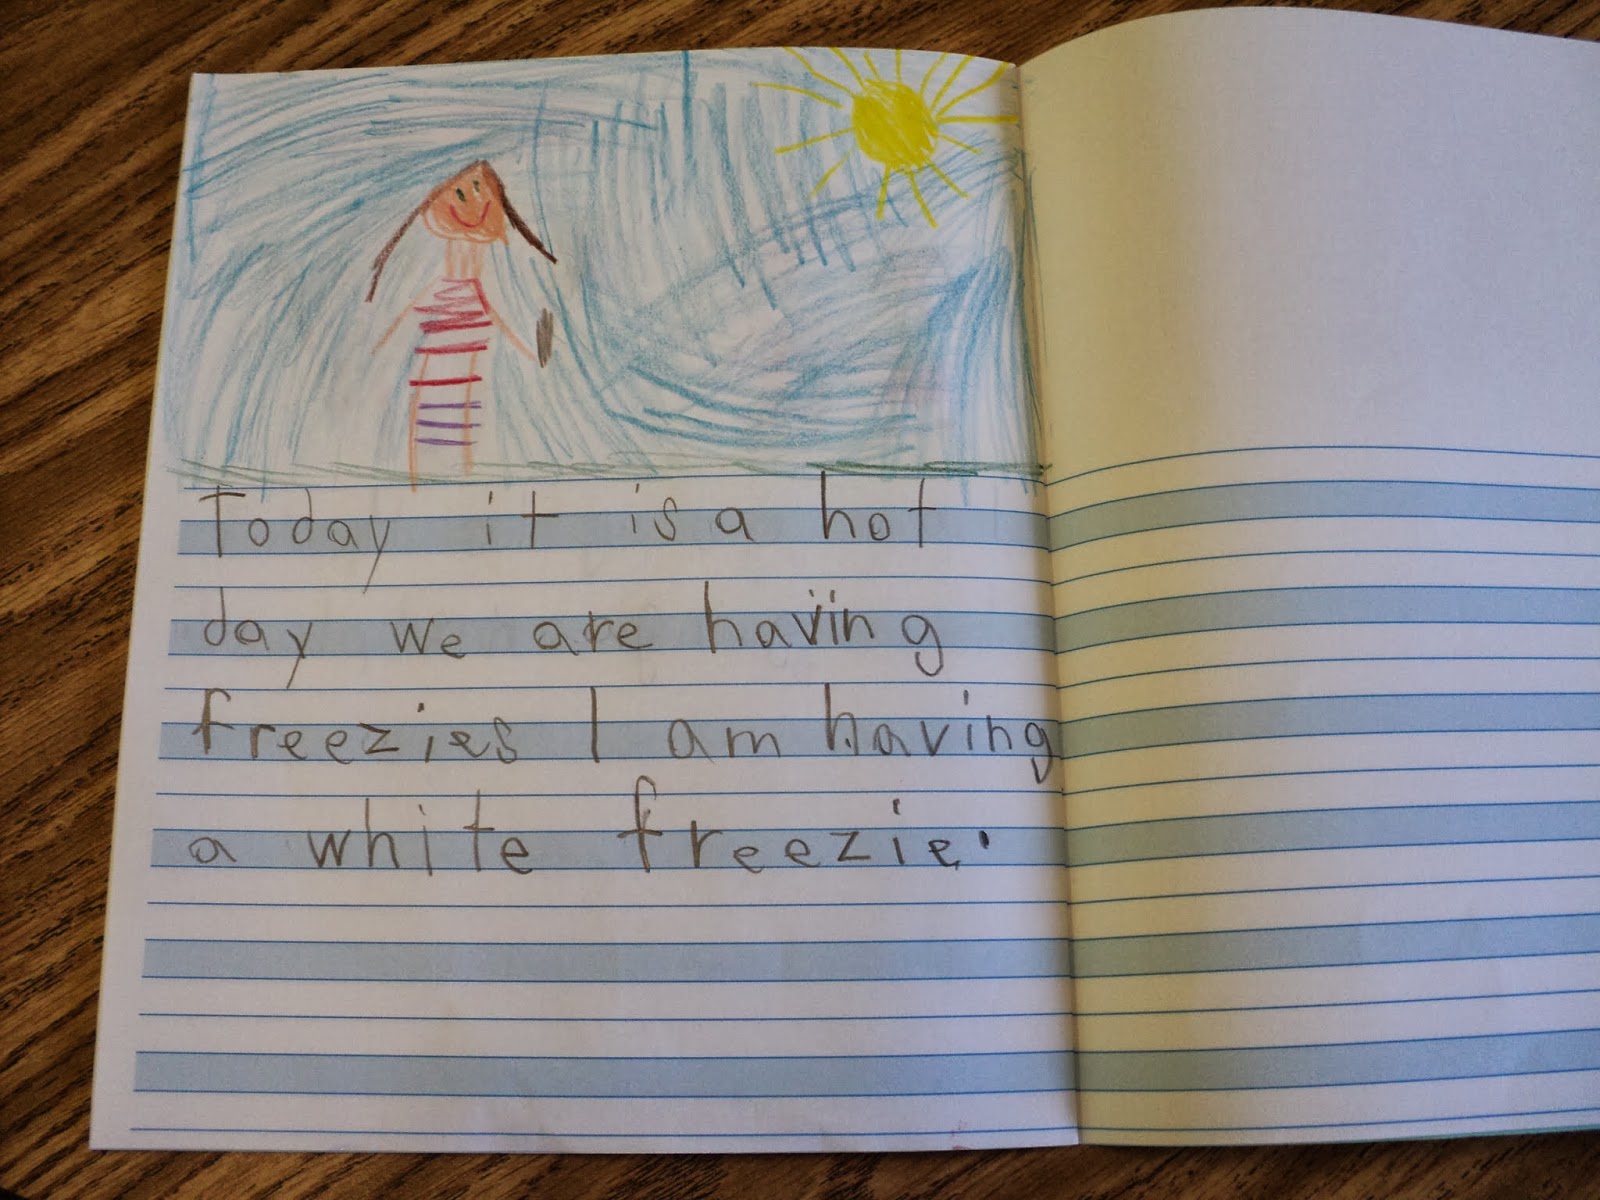 Today it is a hot
day we are having
freezies I am having
a white freezie.